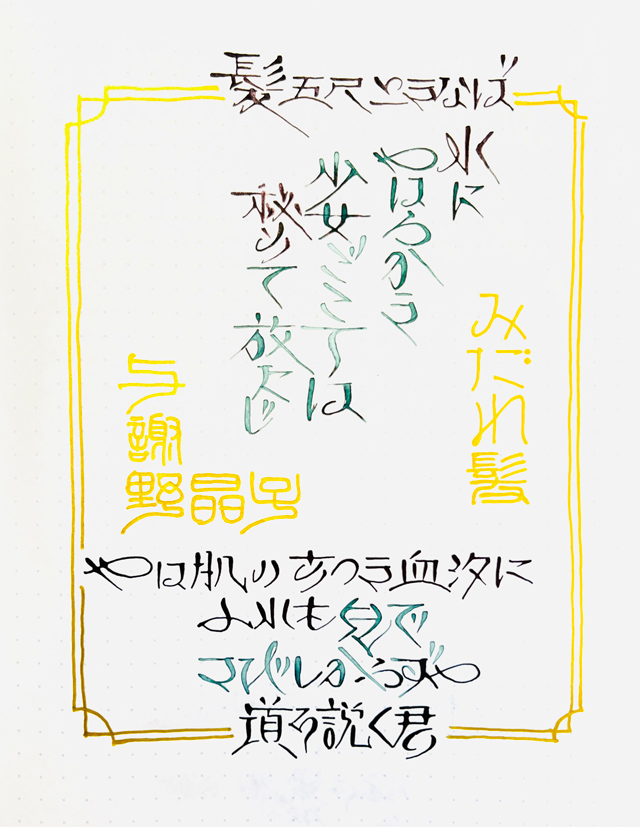 髪五尺ときなば
水に
やはらかき
少女ごころは
秘めて放たじ
みだれ髪
与謝
野晶子
やは肌のあつき血汐に
ふれも見で
さびしからずや
道を説く君